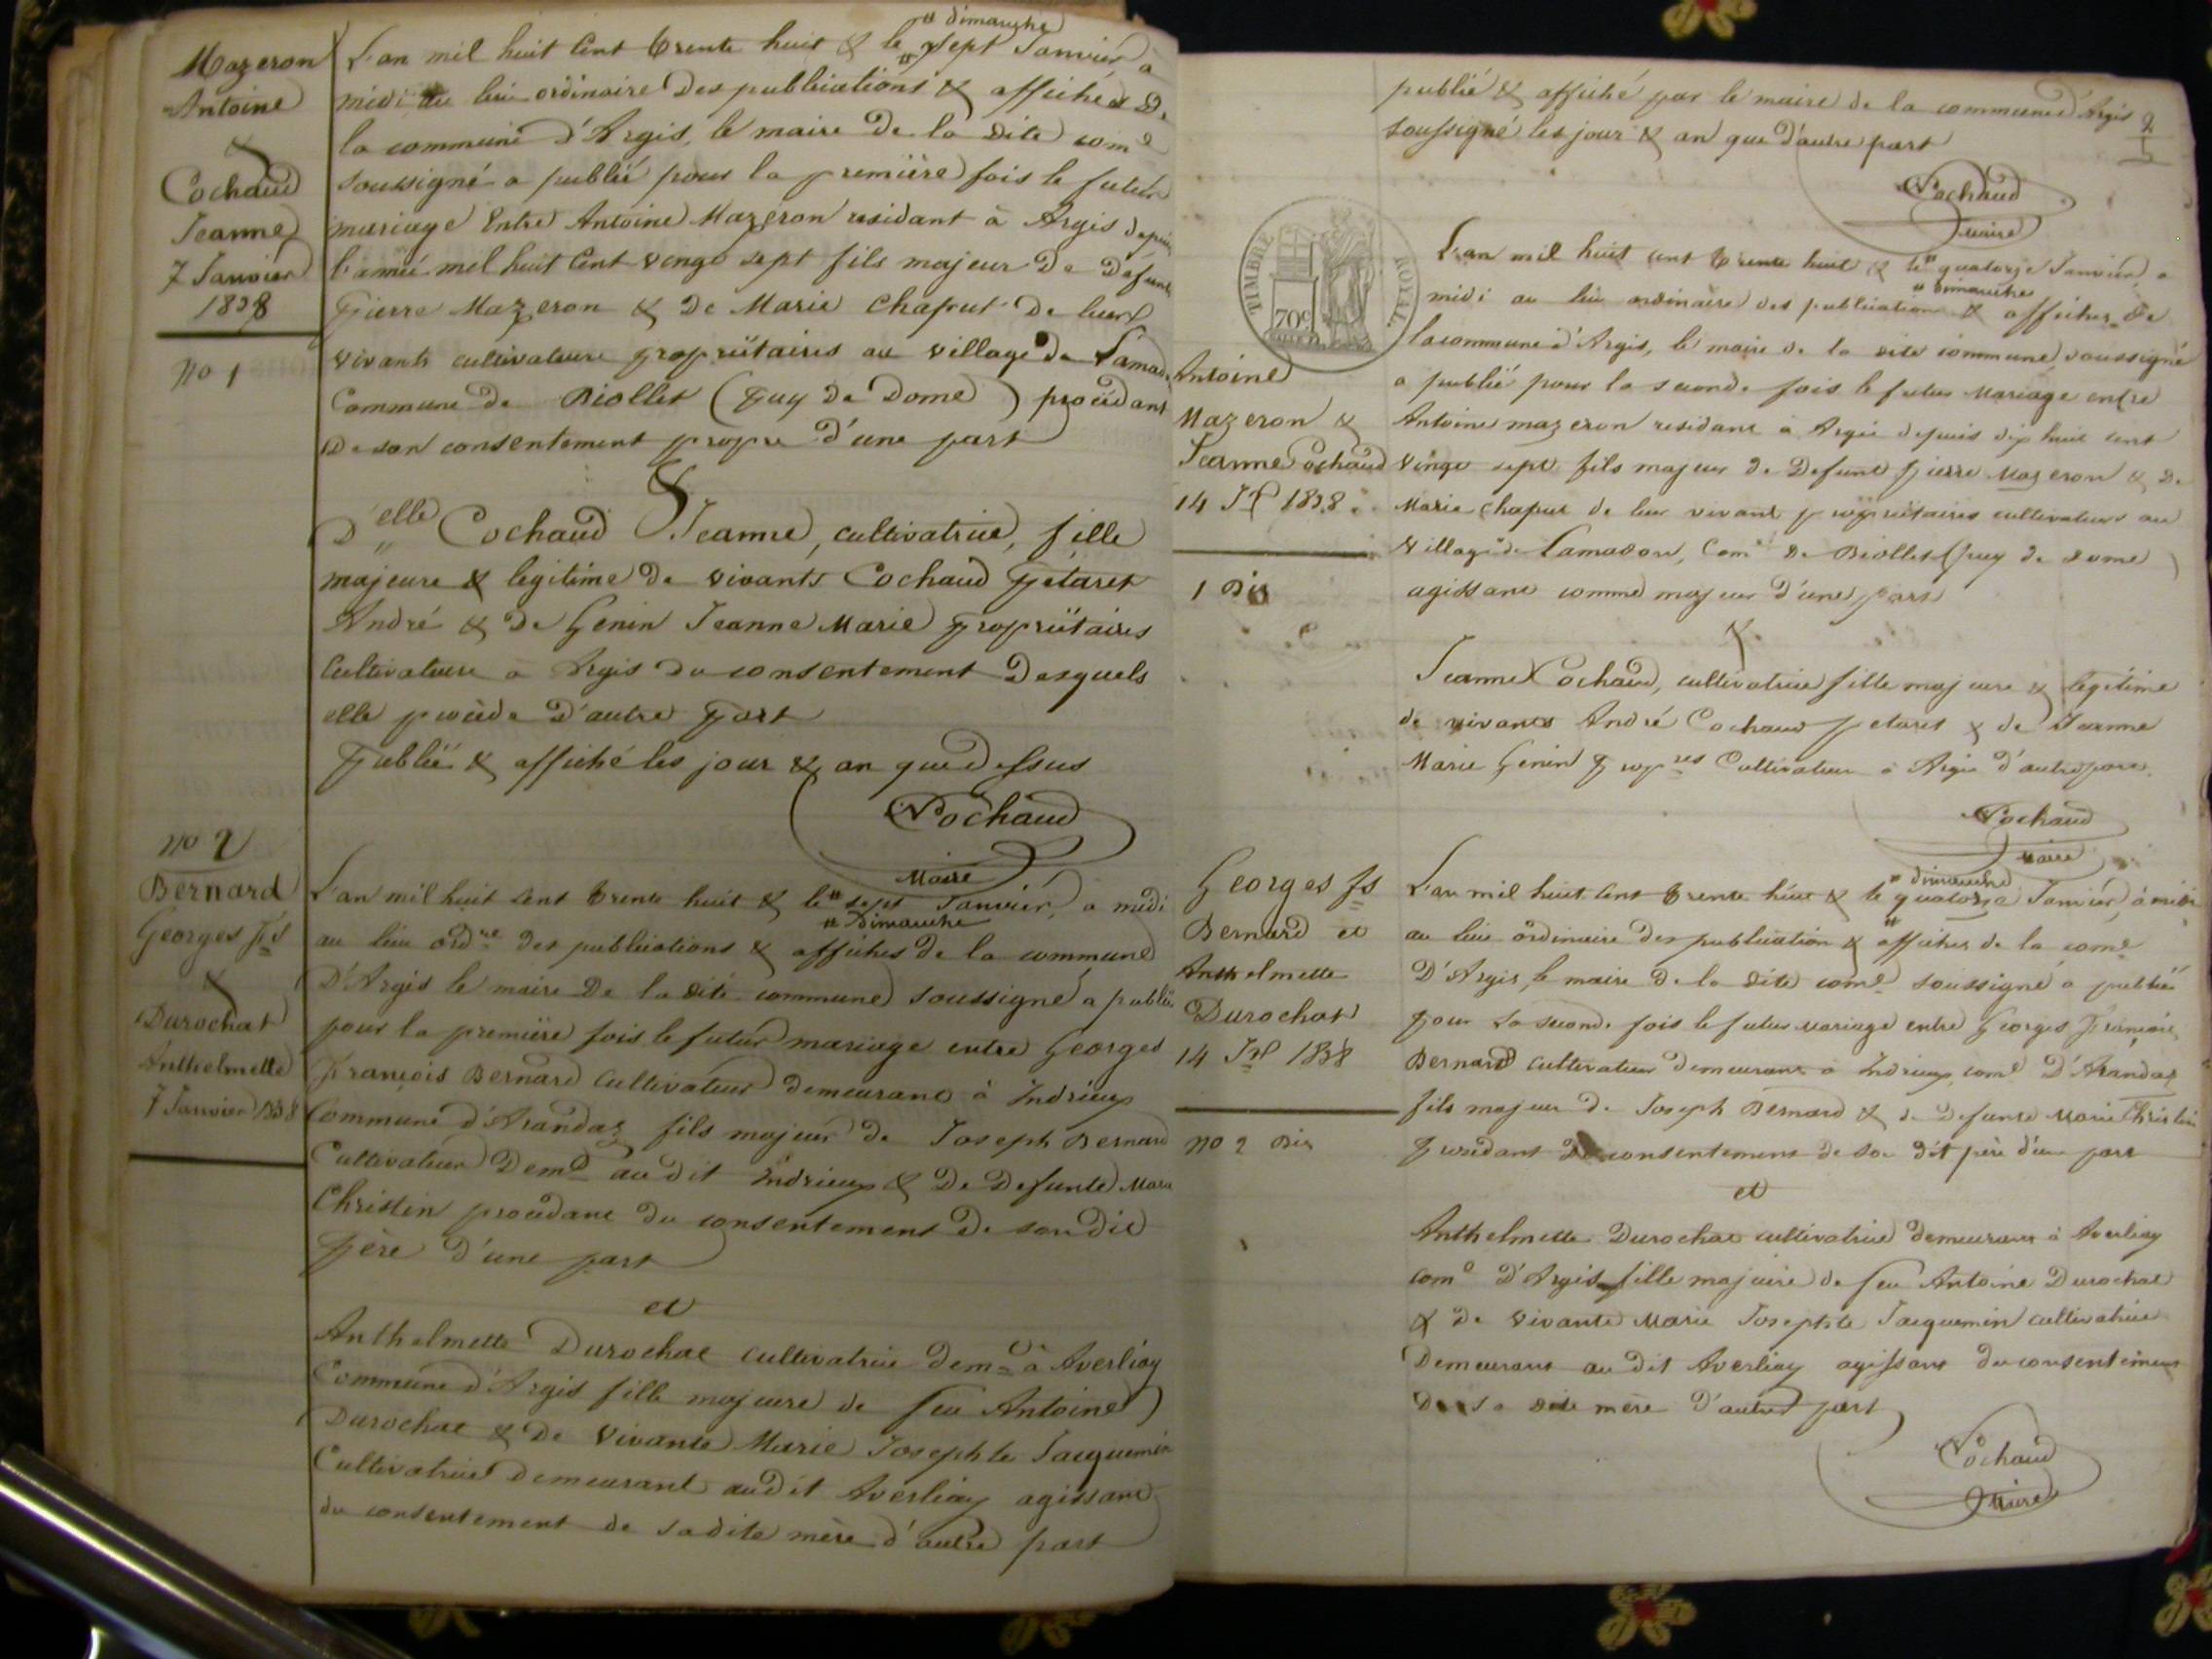 Mazeron
Antoine
&
Cochaud
Jeanne
7 Janvier
1838
No 1
L'an mil huit Cent trente huit & le " sept Janvier à
" dimanche
midi au lieu ordinaire des publications & affiches De
la commune d'Argis, le maire De la dite com.e
soussigné a publié pour la première fois le futur
mariage Entre Antoine Mazeron residant à Argis depuis
l'année mil huit Cent vingt sept fils majeur De Defunt
Pierre Mazeron & De Marie Chaput De leurs
vivants cultivateurs propriétaires au village de Lamad.
Commune De Biollet (Puy De Dome) procédant
De son consentement propre d'une part
&
D'elle Cochaud Jeanne, cultivatrice, fille
majeure & legitime De vivants Cochaud Petaret
André & De Genin Jeanne Marie Propriétaires
Cultivateurs à Argis du consentement Desquels
elle procède D'autre Part
Publié & affiché les jour & an que Dessus
Cochaud
Maire
No 2
Bernard
Georges Fs
&
Durochat
Anthelmette
7 Janvier 1838
L'an mil huit Cent trente huit & le " sept Janvier, a midi
" Dimanche
au lieu ordre des publications & affiches de la commune
D'Argis le maire De la dite commune soussigné a publié
pour la première fois le futur mariage entre Georges
François Bernard Cultivateur demeurant à Indrieux
Commune d'Arandaz fils majeur de Joseph Bernard
Cultivateur Demt au dit Indrieux & De Defunte Marie
Christin procédant du consentement De son dit
Père D'une part
et
Anthelmette Durochat cultivatrice demt à Averliaz
Commune d'Argis fille majeure de feu Antoine
Durochat & De Vivante Marie Josephte Jacquemin
Cultivatrice demeurant audit Averliaz agissant
du consentement de sadite mère d'autre part
publié & affiché par le maire de la commune d'Argis
soussigné les jour & an que d'autre part
2
Cochaud
maire
TIMBRE ROYAL
70c
Antoine
Mazeron &
Jeanne Cochaud
14 Jr 1838
1 Bis
L'an mil huit cent trente huit & le " quatorze Janvier, a
" Dimanche
midi au lieu ordinaire des publications & affiches De
la commune d'Argis, le maire de la dite commune, soussigné
a publié pour la seconde fois le futur Mariage entre
Antoine mazeron residant à Argis depuis dix huit cent
vingt sept fils majeur de Defunt Pierre Mazeron & De
Marie Chaput de leur vivant propriétaires cultivateurs au
Village de Lamadon, Come De Biollet (Puy de dome)
agissant comme majeur d'une part
&
Jeanne Cochaud, cultivatrice fille majeure & legitime
de vivants André Cochaud Petaret & de Jeanne
Marie Genin propres Cultivateurs à Argis d'autre part.
Cochaud
Maire
Georges Fs
Bernard et
Anthelmette
Durochat
14 Jr 1838
No 2 Bis
L'an mil huit Cent trente huit & le " quatorze Janvier, à midi
" dimanche
au lieu ordinaire des publication & affiches de la come
D'Argis, le maire De la dite come soussigné a publié
pour La seconde fois le futur mariage entre Georges François
Bernard cultivateur demeurant à Indrieux come D'Arandaz
fils majeur De Joseph Bernard & de Defunte Marie Christin
procédant De consentement de son dit père d'une part
et
Anthelmette Durochat cultivatrice demeurant à Averliaz
come D'Argis fille majeure de feu Antoine Durochat
& De vivante Marie Josephte Jacquemin cultivatrice
Demeurant au dit Averliaz agissant du consentement
De sa dite mère D'autre part
Cochaud
Maire